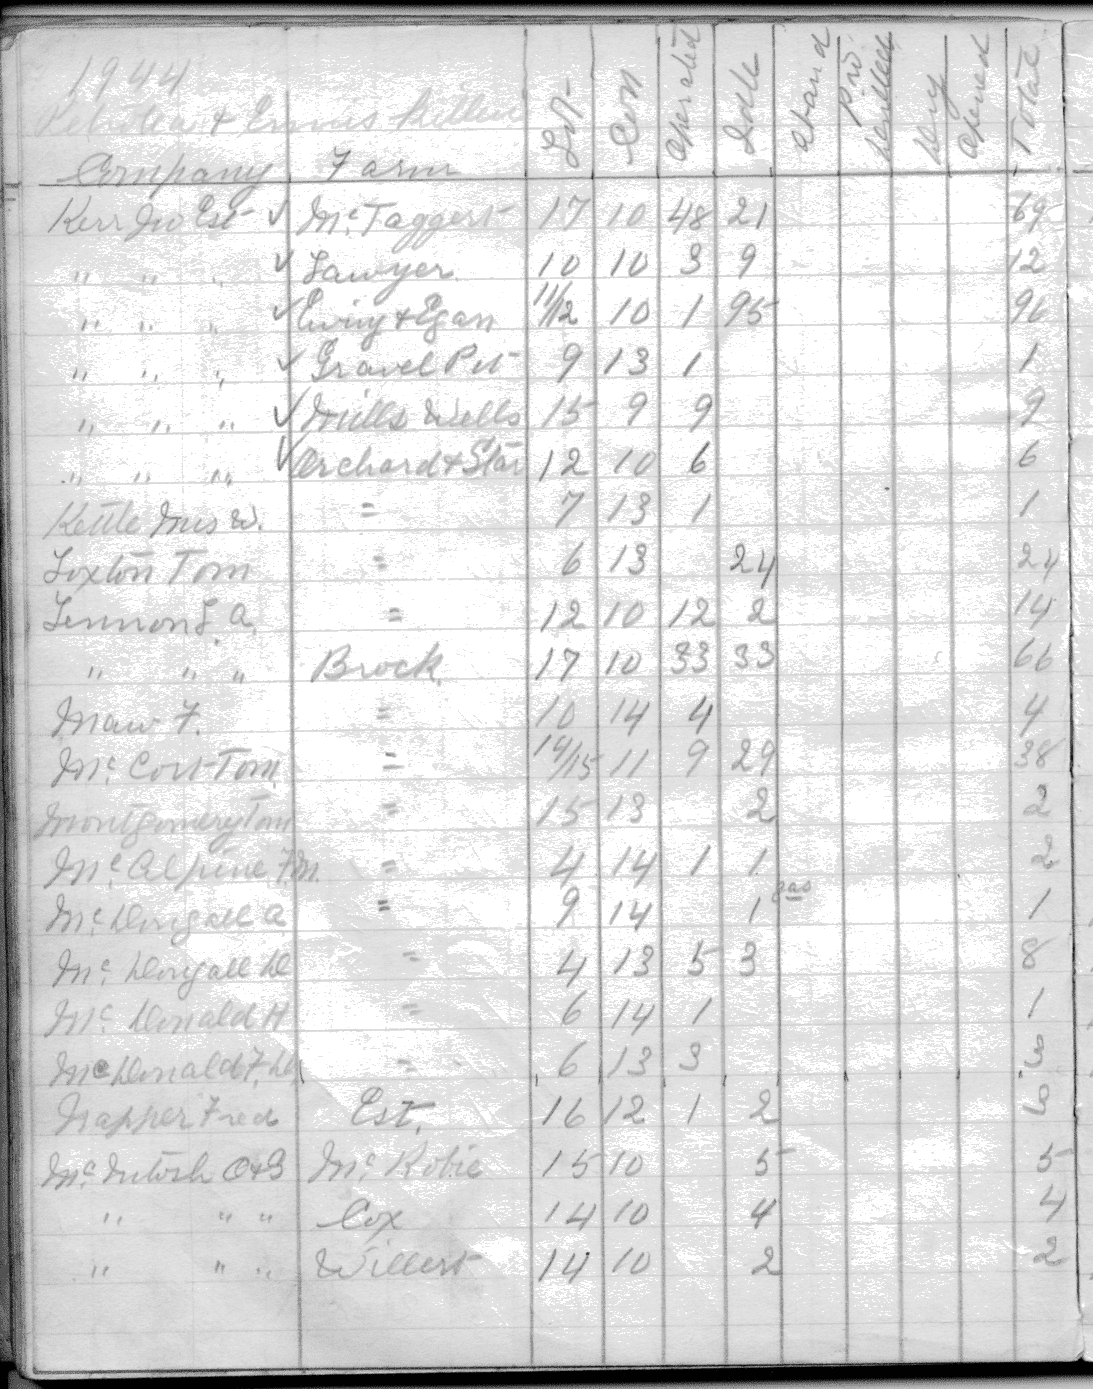 1944
Petrolea & Ennis Killen
Company Farm Lot Con Operated Idle Aband New Drilled Dry Opened Total
Kerr Jno Est ✓ Mc Taggert 17 10 48 21 69
" " " ✓ Sawyer 10 10 3 9 12
" " " ✓ Ewing & Egan 11/12 10 1 95 96
" " " ✓ Gravel Pit 9 13 1 1
" " " ✓ Mills Wells 15 9 9 9
" " " ✓ Orchard & Star 12 10 6 6
Kettle Mrs W. = 7 13 1 1
Loxton Tom = 6 13 24 24
Lennon L. A. = 12 10 12 2 14
" " " Brock 17 10 33 33 66
Maw F. = 10 14 4 4
Mc Cort Tom = 14/15 11 9 29 38
Montgomery Tom = 15 13 2 2
Mc Alpine F.M. = 4 14 1 1 2
Mc Dougall A = 9 14 1 gas 1
Mc Dougall D = 4 13 5 3 8
Mc Donald H = 6 14 1 1
Mc Donald F. D. = 6 13 3 3
Napper Fred Est. 16 12 1 2 3
Mc Intosh O & G Mc Robie 15 10 5 5
" " " Cox 14 10 4 4
" " " Willert 14 10 2 2